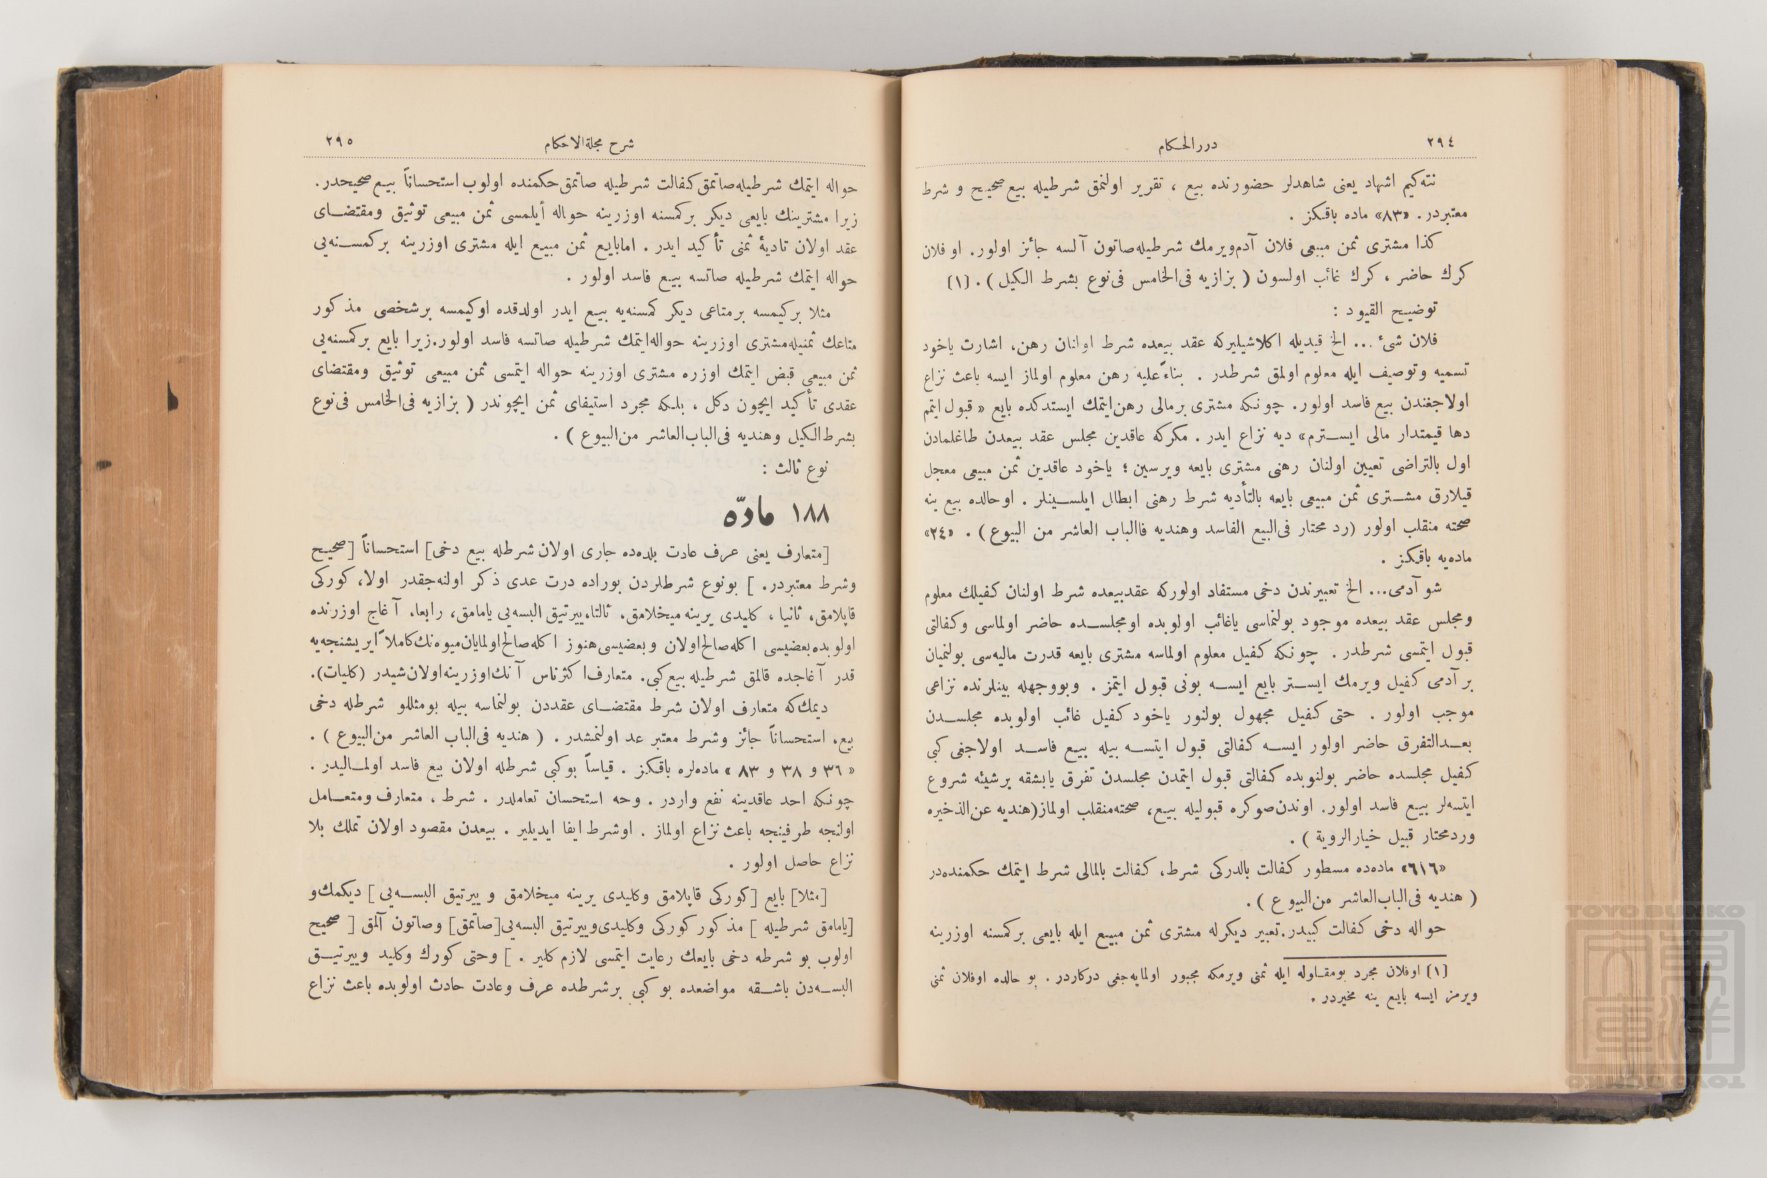 ٢٩٤
دررالحكام
نته‌كيم اشهاد يعنى شاهدلر حضورنده بيع ، تقرير اولنمق شرطيله بيع صحيح و شرط
معتبردر. «٨٣» ماده باقكز .
كذا مشترى ثمن مبيعى فلان آدم ويرمك شرطيله صاتون آلسه جائز اولور. او فلان
كرك حاضر ، كرك غائب اولسون ( بزازيه فى‌الخامس فى‌نوع بشرط الكيل ) . [١]
توضيح القيود :
فلان شىء ... الخ قيديله اكلاشيليركه عقد بيعده شرط اولنان رهن، اشارت ياخود
تسميه وتوصيف ايله معلوم اولمق شرطدر . بناءً عليه رهن معلوم اولماز ايسه باعث نزاع
اولاجغندن بيع فاسد اولور. چونكه مشترى برمالى رهن ايتمك ايستدكده بايع « قبول ايتمم
دها قيمتدار مالى ايسترم» ديه نزاع ايدر . مكركه عاقدين مجلس عقد بيعدن طاغلمادن
اول بالتراضى تعيين اولنان رهنى مشترى بايعه ويرسين ؛ ياخود عاقدين ثمن مبيعى معجل
قيلارق مشترى ثمن مبيعى بايعه بالتأديه شرط رهنى ابطال ايلسينلر . اوحالده بيع ينه
صحته منقلب اولور (رد محتار فى‌البيع الفاسد وهنديه فاالباب العاشر من البيوع ) . «٢٤»
ماده‌يه باقكز .
شو آدمى... الخ تعبيرندن دخى مستفاد اولوركه عقدبيعده شرط اولنان كفيلك معلوم
ومجلس عقد بيعده موجود بولنماسى ياغائب اولوبده اومجلسده حاضر اولماسى وكفالتى
قبول ايتمسى شرطدر . چونكه كفيل معلوم اولماسه مشترى بايعه قدرت ماليه‌سى بولنميان
بر آدمى كفيل ويرمك ايستر بايع ايسه بونى قبول ايتمز . وبووجهله بينلرنده نزاعى
موجب اولور . حتى كفيل مجهول بولنور ياخود كفيل غائب اولوبده مجلسدن
بعدالتفرق حاضر اولور ايسه كفالتى قبول ايتسه بيله بيع فاسد اولاجغى كبى
كفيل مجلسده حاضر بولنوبده كفالتى قبول ايتمدن مجلسدن تفرق يابشقه برشيئه شروع
ايتسه‌لر بيع فاسد اولور. اوندن صوكره قبوليله بيع، صحته منقلب اولماز(هنديه عن‌الذخيره
وردمحتار قبيل خيارالروية ) .
«٦١٦» ماده‌ده مسطور كفالت بالدركى شرط، كفالت بالمالى شرط ايتمك حكمنده‌در
( هنديه فى‌الباب‌العاشر من‌البيوع ) .
حواله دخى كفالت كبيدر. تعبير ديكرله مشترى ثمن مبيع ايله بايعى بركمسنه اوزرينه
[١] اوفلان مجرد بومقاوله ايله ثمنى ويرمكه مجبور اولمايه‌جغى دركاردر . بو حالده اوفلان ثمنى
ويرمز ايسه بايع ينه مخيردر .
شرح مجلة‌الاحكام
٢٩٥
حواله ايتمك شرطيله صاتمق كفالت شرطيله صاتمق حكمنده اولوب استحساناً بيع صحيحدر.
زيرا مشترينك بايعى ديكر بركمسنه اوزرينه حواله أيلمسى ثمن مبيعى توثيق ومقتضاى
عقد اولان تاديۀ ثمنى تأكيد ايدر . امابايع ثمن مبيع ايله مشترى اوزرينه بركمسنه‌يى
حواله ايتمك شرطيله صاتسه بيع فاسد اولور .
مثلا بركيمسه برمتاعى ديكر كمسنه‌يه بيع ايدر اولدقده اوكيمسه برشخصى مذكور
متاعك ثمنيله مشترى اوزرينه حواله‌ايتمك شرطيله صاتسه فاسد اولور.زيرا بايع بركمسنه‌يى
ثمن مبيعى قبض ايتمك اوزره مشترى اوزرينه حواله ايتمسى ثمن مبيعى توثيق ومقتضاى
عقدى تأكيد ايچون دكل ، بلكه مجرد استيفاى ثمن ايچوندر ( بزازيه فى‌الخامس فى‌نوع
بشرط‌الكيل وهنديه فى‌الباب‌العاشر من‌البيوع ) .
نوع ثالث :
١٨٨ مادّه
[متعارف يعنى عرف عادت بلده‌ده جارى اولان شرطله بيع دخى] استحساناً [صحيح
وشرط معتبردر. ] بونوع شرطلردن بوراده درت عددى ذكر اولنه‌جقدر اولا، كوركى
قاپلامق، ثانيا ، كليدى يرينه ميخلامق. ثالثا، ييرتيق البسه‌يى يامامق، رابعا. آغاج اوزرنده
اولوبده بعضيسى اكله صالح‌اولان وبعضيسى هنوز اكله صالح‌اولمايان ميوه‌نك كاملاً ايريشنجه‌يه
قدر آغاجده قالمق شرطيله بيع كبى. متعارف اكثرناس آنك اوزرينه اولان شيدر (كليات).
ديمك كه متعارف اولان شرط مقتضاى عقددن بولنماسه بيله بومثللو شرطله دخى
بيع، استحساناً جائز وشرط معتبر عد اولنمشدر . ( هنديه فى‌الباب العاشر من‌البيوع ) .
«٣٦ و ٣٨ و ٨٣ » ماده‌لره باقكز . قياساً بوكبى شرطله اولان بيع فاسد اولماليدر .
چونكه احد عاقدينه نفع واردر . وجه استحسان تعاملدر . شرط ، متعارف ومتعامل
اولنجه طرفينجه باعث نزاع اولماز . اوشرط ايفا ايديلير . بيعدن مقصود اولان تملك بلا
نزاع حاصل اولور .
[مثلا] بايع [كوركى قاپلامق وكليدى يرينه ميخلامق و ييرتيق البسه‌يى ] ديكمك و
[يامامق شرطيله ] مذكور كوركى وكليدى وييرتيق البسه‌يى[صاتمق] وصاتون آلمق [ صحيح
اولوب بو شرطه دخى بايعك رعايت ايتمسى لازم كلير . ] وحتى كورك وكليد وييرتيق
البسه‌دن باشقه مواضعده بوكبى برشرطده عرف وعادت حادث اولوبده باعث نزاع
TOYO BUNKO